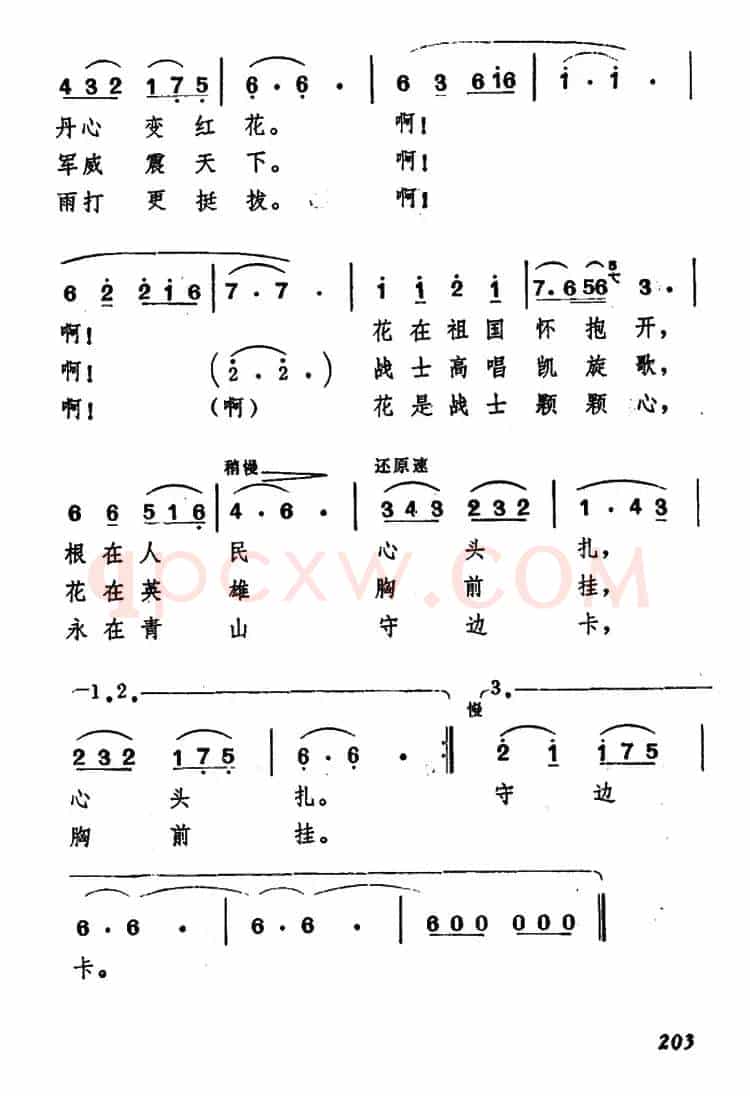 432 175 | 6· 6· | 6 3 616 | 1· 1· |
丹心 变红 花。 啊！
军威 震天 下。 啊！
雨打 更挺 拔。 啊！
6 2 216 | 7· 7· | 1 1 2 1 | 7.656 5 3· |
啊！ 花在祖国怀抱开，
啊！ (2· 2·) 战士高唱凯旋歌，
啊！ (啊) 花是战士颗颗心，
稍慢 还原速
6 6 516 | 4· 6· | 343 232 | 1· 43 |
根在人民 心头扎，
花在英雄 胸前挂，
永在青山 守边卡，
1.2. 3.
慢
232 175 | 6· 6· :| 2 1 175 |
心头扎。 守边
胸前挂。
6· 6· | 6· 6· | 600 000 ||
卡。
203
qpcxw.COM